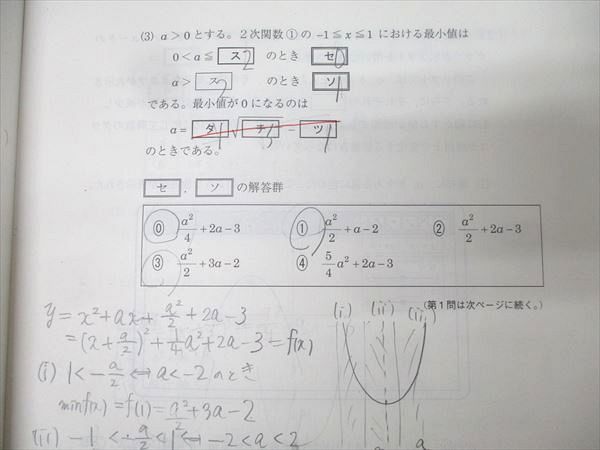 (3) a>0とする。2次関数①の−1≦x≦1における最小値は
0<a≦ ス 2 のとき セ 0
a> ス 2 のとき ソ 1
である。最小値が0になるのは
a= タ √チ − ツ
のときである。
セ , ソ の解答群
⓪ a²/4+2a−3 ① a²/2+a−2 ② a²/2+2a−3
③ a²/2+3a−2 ④ 5/4a²+2a−3
(第1問は次ページに続く。)
(i) (ii) (iii)
y=x²+ax+a²/2+2a−3
=(x+a/2)²+1/4a²+2a−3=f(x)
(i) 1<−a/2⇔a<−2のとき
minf(x)=f(1)=a²/2+3a−2
−1<−a/2<1⇔−2<a<2